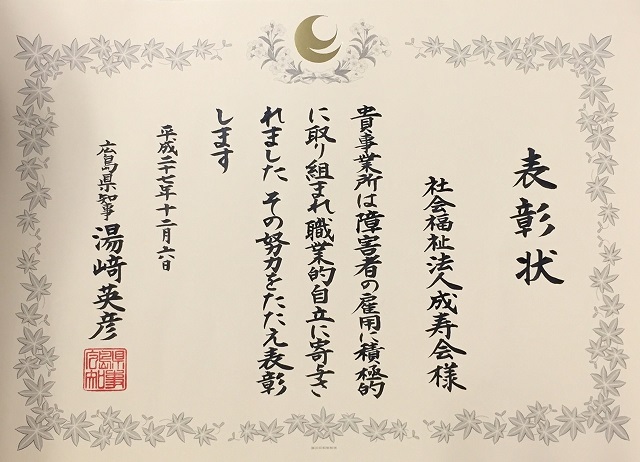 表彰状
社会福祉法人成寿会様
貴事業所は障害者の雇用に積極的
に取り組まれ職業的自立に寄与さ
れました その努力をたたえ表彰
します
平成二十七年十二月六日
広島県知事 湯﨑英彦